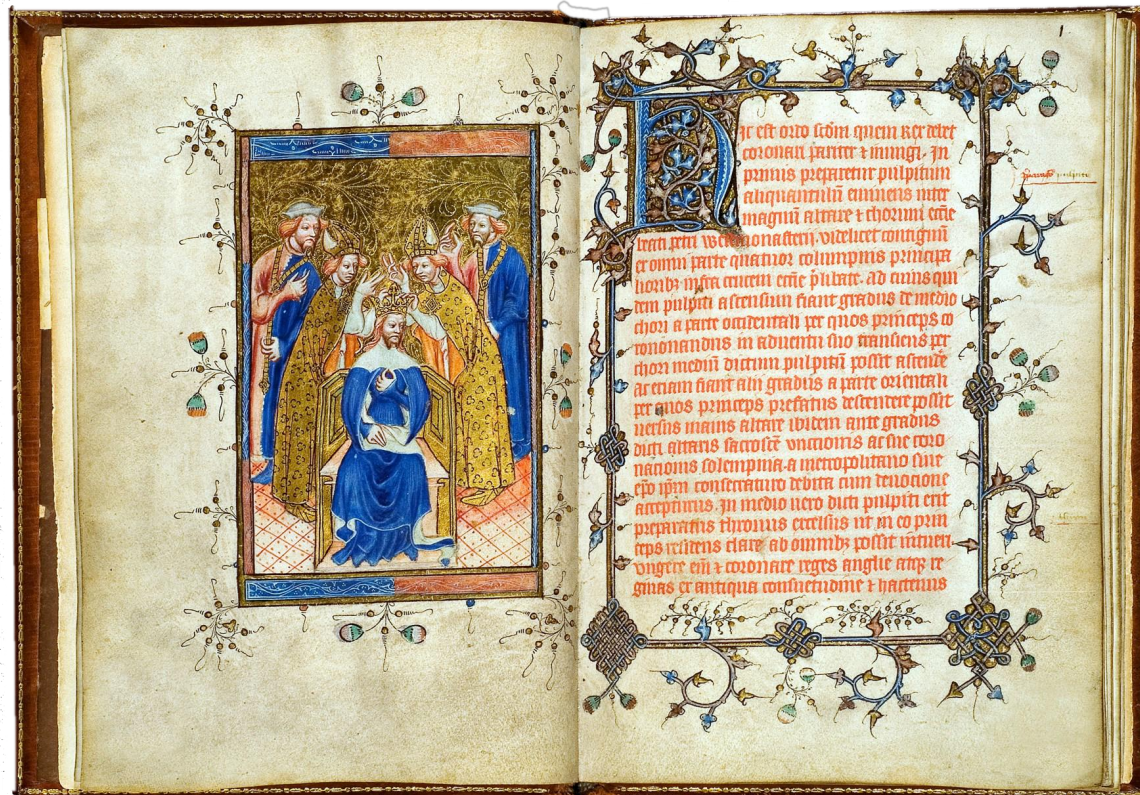 1
Hic est ordo scđm quem Rex debet
coronari pariter ⁊ inungi. In
primis preparetur pulpitum
aliquantulū eminens inter
magnū altare ⁊ chorum ecc̄ie
beati petri westmonasterij. videlicet contiguū
ex omni parte quatuor columpnis principa
lioribꝫ infra crucem ecc̄ie p̄libate. Ad cuius qui
dem pulpiti ascensum fiant gradus de medio
chori a parte occidentali per quos princeps co
ronandus in aduentu suo transiens per
chori medium dictum pulpitū possit ascende
Ac etiam fiant alij gradus a parte orientali
per quos princeps prefatus descendere possit
versus maius altare ibidem ante gradus
dicti altaris sacrosc̄e vnctionis ac sue coro
nacionis solempnia. a metropolitano siue
ep̄o ip̄m consecraturo debita cum deuocione
accepturus. In medio uero dicti pulpiti erit
preparatus thronus excelsus ut in eo prin
ceps residens clare ab omnibꝫ possit intueri.
vngere eni ⁊ coronare reges anglie atqꝫ re
ginas ex antiqua consuetudine ⁊ hactenus